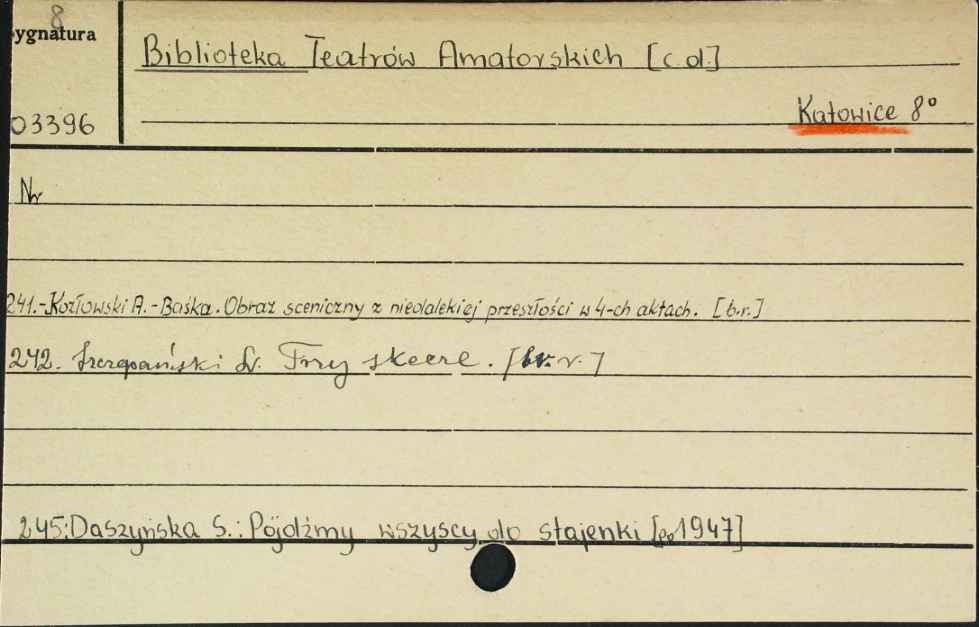 8
ygnatura
Biblioteka Teatrów Amatorskich [c.d.]
03396
Katowice 8°
Nr
241.-Kozłowski A.-Baśka. Obraz sceniczny z niedalekiej przeszłości w 4-ch aktach. [b.r.]
242. Szczepański L. Trzy [b. r.]
245: Daszyńska S.: Pójdźmy wszyscy do stajenki [po 1947]